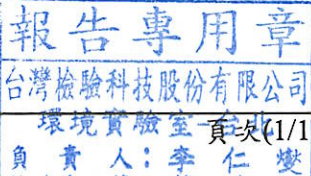 報告專用章
台灣檢驗科技股份有限公司
環境實驗室-台北
頁次(1/1
負責人:李仁燮